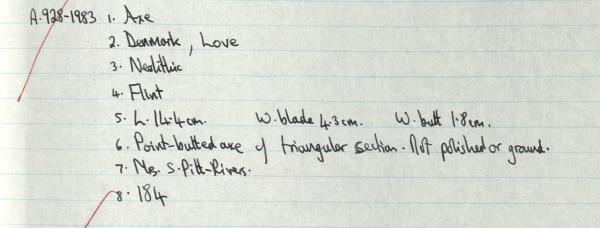 A.928-1983 1. Axe
2. Denmark, Love
3. Neolithic
4. Flint
5. L. 14.4cm. W. blade 4.3cm. W. butt 1.8cm.
6. Point-butted axe of triangular section. Not polished or ground.
7. Ms. S. Pitt-Rivers.
8. 184